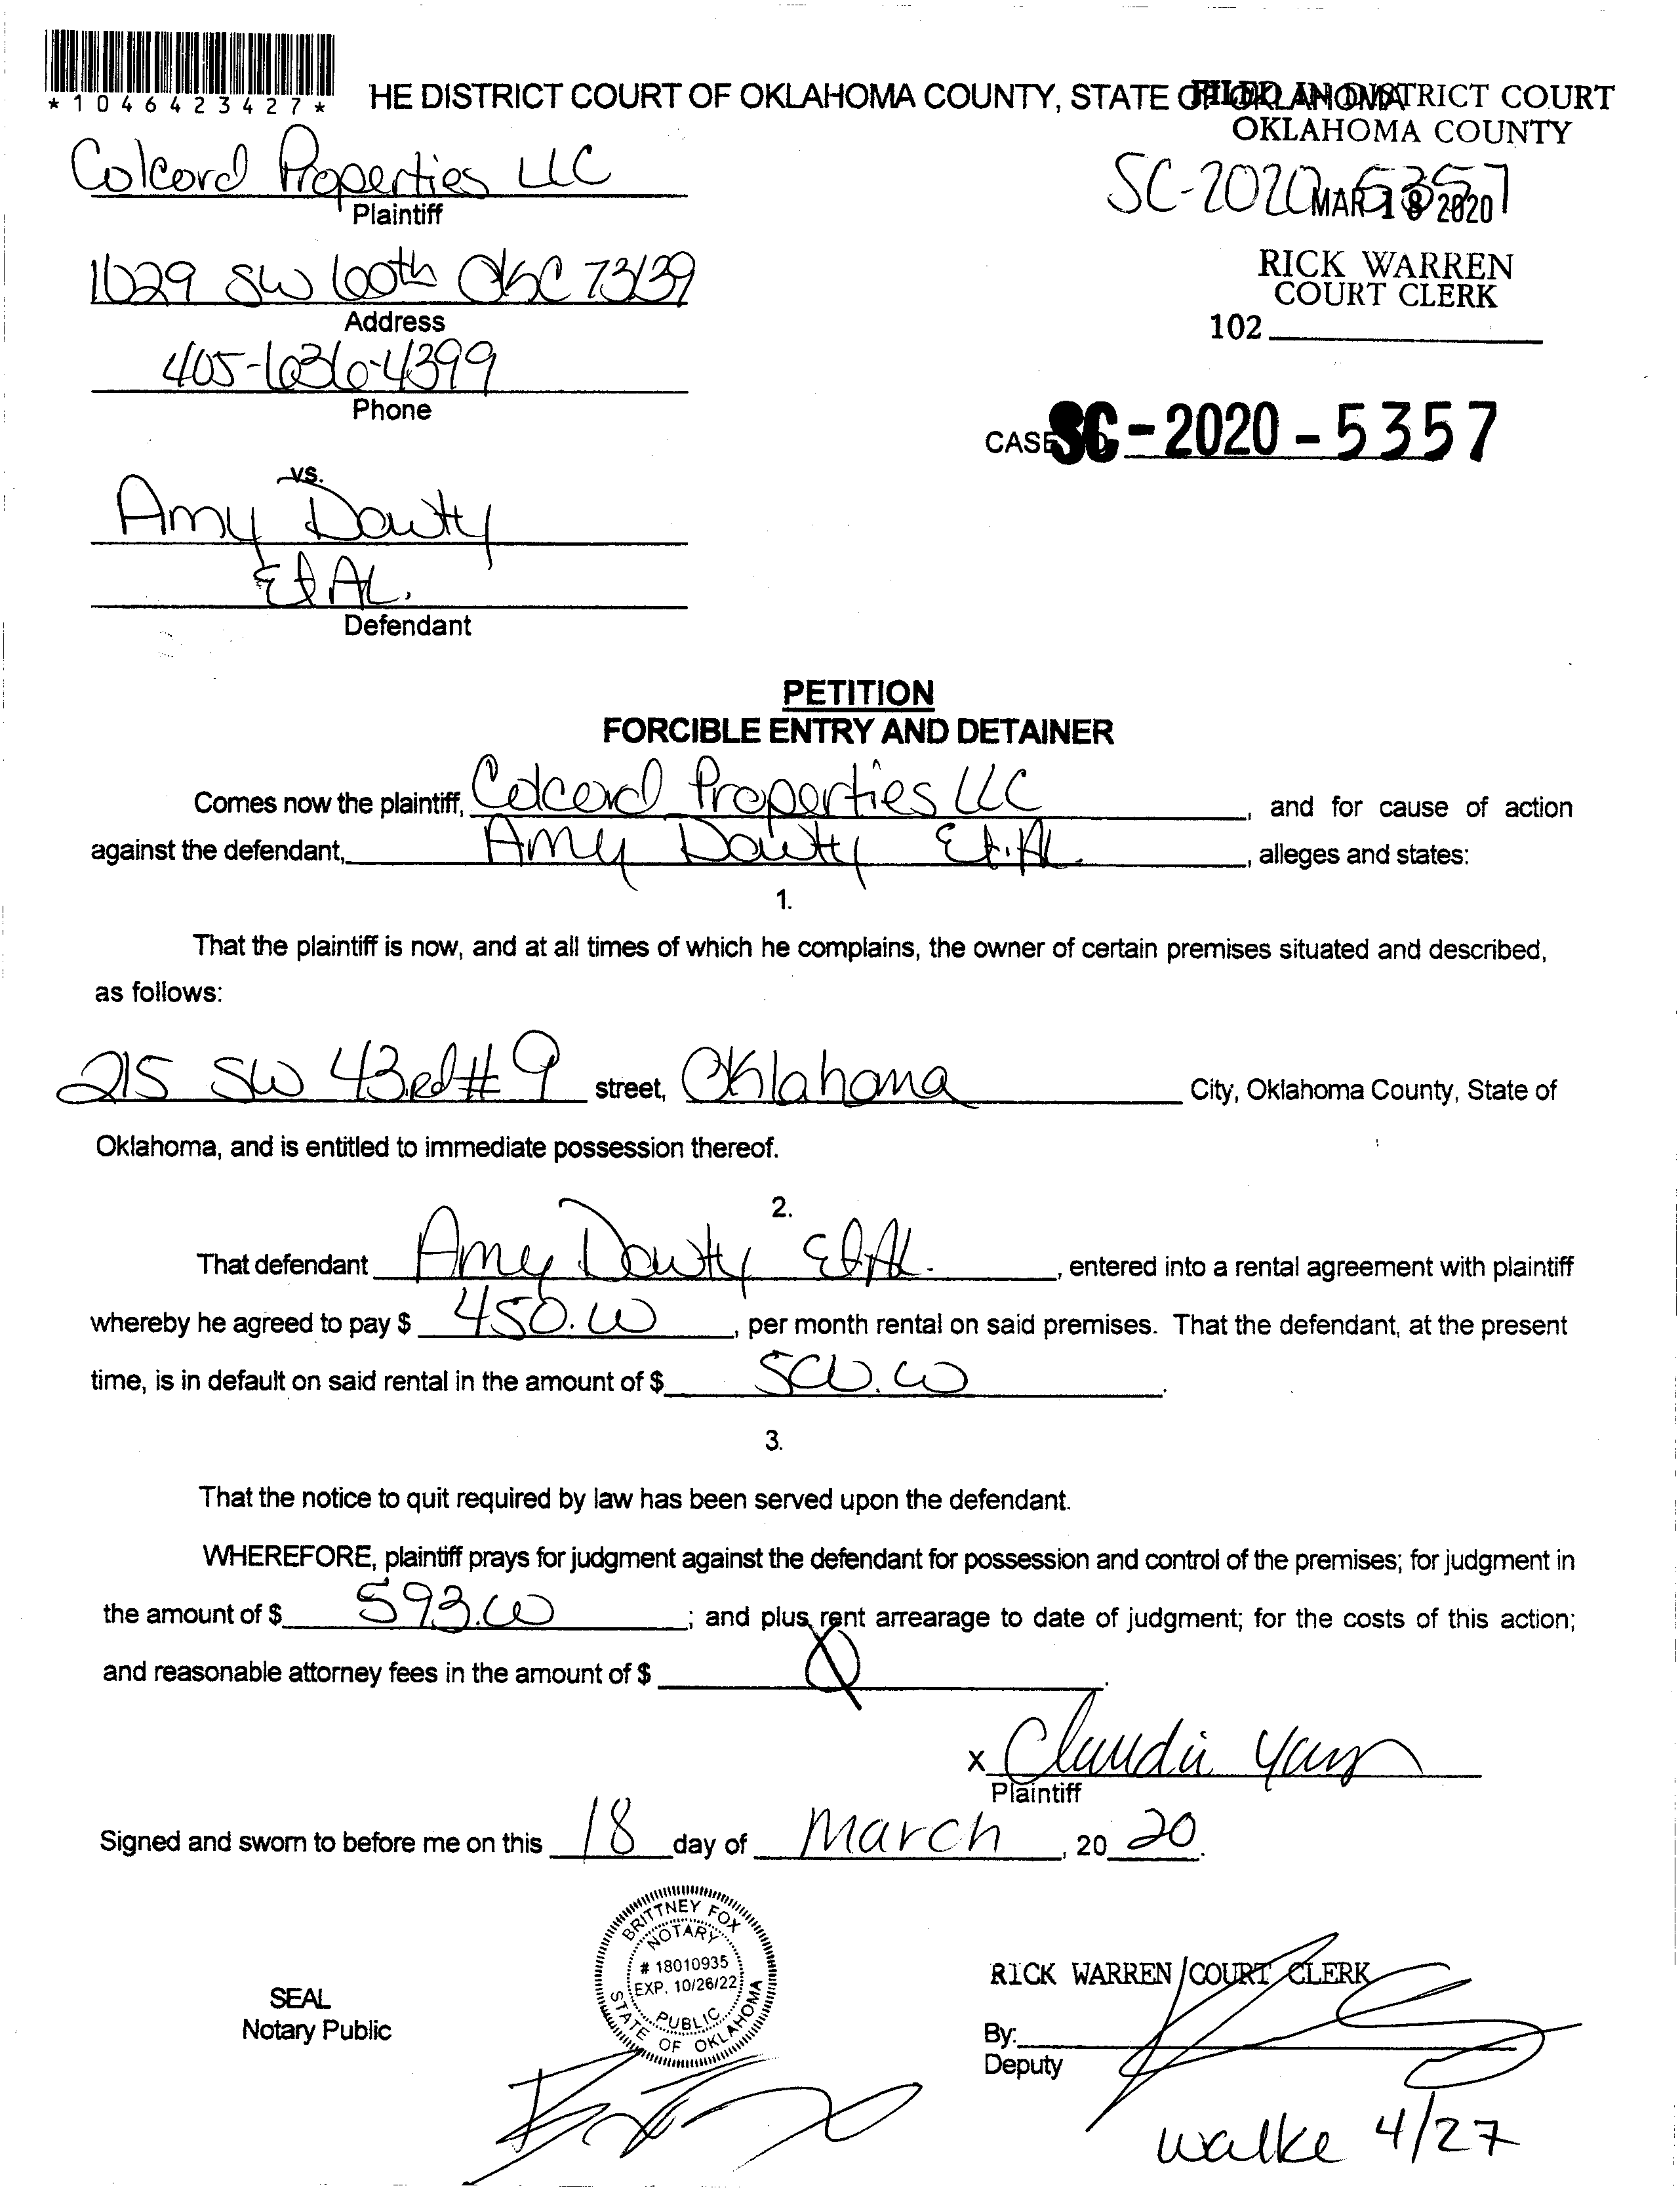 *1046423427*
HE DISTRICT COURT OF OKLAHOMA COUNTY, STATE OF OKLAHOMA
FILED IN DISTRICT COURT
OKLAHOMA COUNTY
Colcord Properties LLC
SC-2020-5357
MAR 18 2020
Plaintiff
1029 SW 60th OKC 73139
RICK WARREN
COURT CLERK
Address
102
405-636-4399
Phone
CASE SC-2020-5357
vs.
Amy Dowty
Et AL.
Defendant
PETITION
FORCIBLE ENTRY AND DETAINER
Comes now the plaintiff, Colcord Properties LLC, and for cause of action
against the defendant, Amy Dowty Et. AL., alleges and states:
1.
That the plaintiff is now, and at all times of which he complains, the owner of certain premises situated and described,
as follows:
215 SW 43rd #9 street, Oklahoma City, Oklahoma County, State of
Oklahoma, and is entitled to immediate possession thereof.
2.
That defendant Amy Dowty Et AL., entered into a rental agreement with plaintiff
whereby he agreed to pay $ 450.00, per month rental on said premises. That the defendant, at the present
time, is in default on said rental in the amount of $ 500.00.
3.
That the notice to quit required by law has been served upon the defendant.
WHEREFORE, plaintiff prays for judgment against the defendant for possession and control of the premises; for judgment in
the amount of $ 593.00; and plus rent arrearage to date of judgment; for the costs of this action;
and reasonable attorney fees in the amount of $ 0.
x Claudia
Plaintiff
Signed and sworn to before me on this 18 day of March, 20 20.
BRITTNEY FOX
NOTARY
# 18010935
EXP. 10/26/22
PUBLIC
STATE OF OKLAHOMA
SEAL
Notary Public
RICK WARREN COURT CLERK
By:
Deputy
walke 4/27